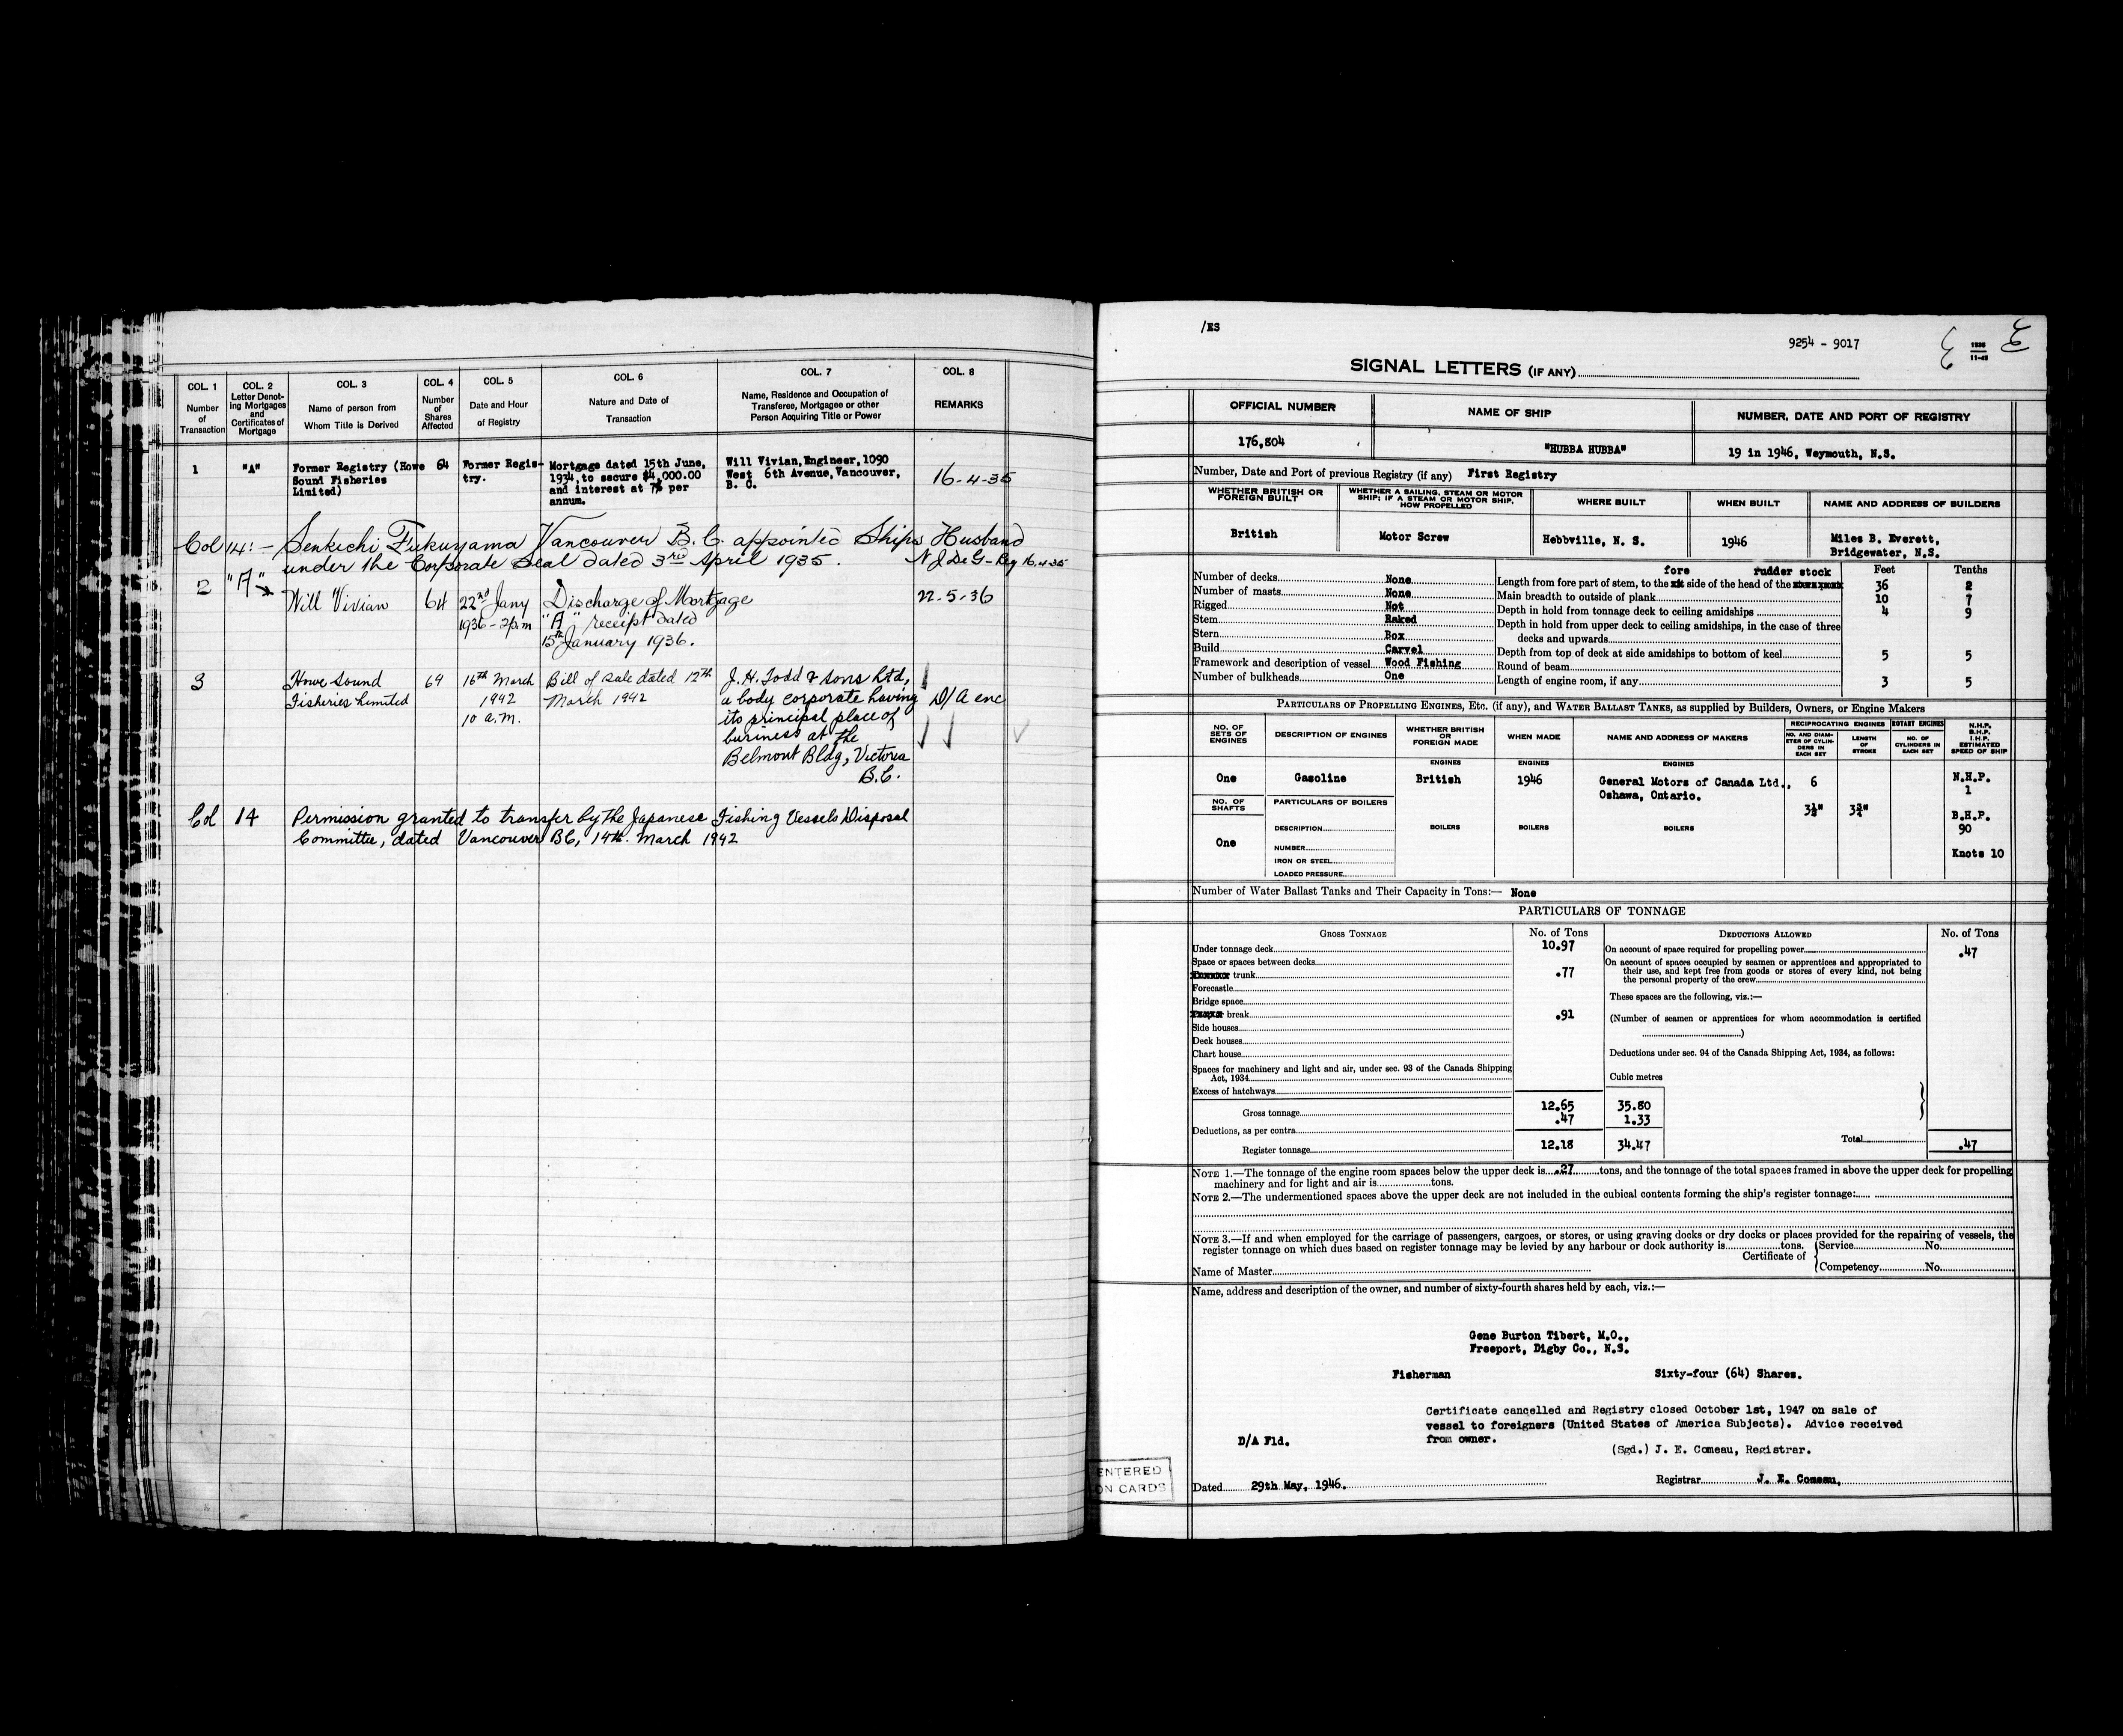 COL. 1
Number
of
Transaction
COL. 2
Letter Denot-
ing Mortgages
and
Certificates of
Mortgage
COL. 3
Name of person from
Whom Title is Derived
COL. 4
Number
of
Shares
Affected
COL. 5
Date and Hour
of Registry
COL. 6
Nature and Date of
Transaction
COL. 7
Name, Residence and Occupation of
Transferee, Mortgagee or other
Person Acquiring Title or Power
COL. 8
REMARKS
1
"A"
Former Registry (Howe
Sound Fisheries
Limited)
64
Former Regis-
try.
Mortgage dated 15th June,
1934, to secure $4,000.00
and interest at 7% per
annum.
Will Vivian, Engineer, 1090
West 6th Avenue, Vancouver,
B. C.
16-4-35
Col 14: - Senkichi Fukuyama Vancouver B. C. appointed Ships Husband
under the Corporate Seal dated 3rd April 1935. N J De G - Reg 16.4.35
2
"A"
Will Vivian
64
22nd Jany
1936 - 2pm
Discharge of Mortgage
"A" receipt dated
15th January 1936.
22-5-36
3
Howe Sound
Fisheries Limited
64
16th March
1942
10 a.m.
Bill of Sale dated 12th
March 1942
J. H. Todd & Sons Ltd,
a body corporate having
its principal place of
business at the
Belmont Bldg, Victoria
B.C.
D/A enc
Col 14 Permission granted to transfer by the Japanese Fishing Vessels Disposal
Committee, dated Vancouver BC, 14th. March 1942
/ES
9254 - 9017
11-45
SIGNAL LETTERS (IF ANY)
OFFICIAL NUMBER
NAME OF SHIP
NUMBER, DATE AND PORT OF REGISTRY
176,804
"HUBBA HUBBA"
19 in 1946, Weymouth, N.S.
Number, Date and Port of previous Registry (if any) First Registry
WHETHER BRITISH OR
FOREIGN BUILT
WHETHER A SAILING, STEAM OR MOTOR
SHIP; IF A STEAM OR MOTOR SHIP,
HOW PROPELLED
WHERE BUILT
WHEN BUILT
NAME AND ADDRESS OF BUILDERS
British
Motor Screw
Hebbville, N. S.
1946
Miles B. Everett,
Bridgewater, N.S.
Number of decks None
Number of masts None
Rigged Not
Stem Raked
Stern Box
Build Carvel
Framework and description of vessel Wood Fishing
Number of bulkheads One
Feet Tenths
fore rudder stock
Length from fore part of stem, to the side of the head of the 36 2
Main breadth to outside of plank 10 7
Depth in hold from tonnage deck to ceiling amidships 4 9
Depth in hold from upper deck to ceiling amidships, in the case of three
decks and upwards
Depth from top of deck at side amidships to bottom of keel 5 5
Round of beam
Length of engine room, if any 3 5
PARTICULARS OF PROPELLING ENGINES, ETC. (if any), AND WATER BALLAST TANKS, as supplied by Builders, Owners, or Engine Makers
NO. OF
SETS OF
ENGINES
DESCRIPTION OF ENGINES
WHETHER BRITISH
OR
FOREIGN MADE
WHEN MADE
NAME AND ADDRESS OF MAKERS
RECIPROCATING ENGINES
NO. AND DIAM-
ETER OF CYLIN-
DERS IN
EACH SET
LENGTH
OF
STROKE
ROTARY ENGINES
NO. OF
CYLINDERS IN
EACH SET
N.H.P.
B.H.P.
I.H.P.
ESTIMATED
SPEED OF SHIP
ENGINES
ENGINES
ENGINES
One
Gasoline
British
1946
General Motors of Canada Ltd.,
Oshawa, Ontario.
6
3½"
3¾"
N.H.P.
1
B.H.P.
90
Knots 10
NO. OF
SHAFTS
One
PARTICULARS OF BOILERS
DESCRIPTION
NUMBER
IRON OR STEEL
LOADED PRESSURE
BOILERS
BOILERS
BOILERS
Number of Water Ballast Tanks and Their Capacity in Tons:— None
PARTICULARS OF TONNAGE
GROSS TONNAGE
No. of Tons
DEDUCTIONS ALLOWED
No. of Tons
Under tonnage deck 10.97
Space or spaces between decks
trunk .77
Forecastle
Bridge space
break .91
Side houses
Deck houses
Chart house
Spaces for machinery and light and air, under sec. 93 of the Canada Shipping
Act, 1934
Excess of hatchways
Gross tonnage 12.65 35.80
Deductions, as per contra .47 1.33
Register tonnage 12.18 34.47
On account of space required for propelling power .47
On account of spaces occupied by seamen or apprentices and appropriated to
their use, and kept free from goods or stores of every kind, not being
the personal property of the crew
These spaces are the following, viz.:—
(Number of seamen or apprentices for whom accommodation is certified
)
Deductions under sec. 94 of the Canada Shipping Act, 1934, as follows:
Cubic metres
Total .47
NOTE 1.—The tonnage of the engine room spaces below the upper deck is .27 tons, and the tonnage of the total spaces framed in above the upper deck for propelling
machinery and for light and air is tons.
NOTE 2.—The undermentioned spaces above the upper deck are not included in the cubical contents forming the ship's register tonnage:
NOTE 3.—If and when employed for the carriage of passengers, cargoes, or stores, or using graving docks or dry docks or places provided for the repairing of vessels, the
register tonnage on which dues based on register tonnage may be levied by any harbour or dock authority is tons.
Name of Master
Certificate of
Service No.
Competency No.
Name, address and description of the owner, and number of sixty-fourth shares held by each, viz.:—
Gene Burton Tibert, M.O.,
Freeport, Digby Co., N.S.
Fisherman Sixty-four (64) Shares.
Certificate cancelled and Registry closed October 1st, 1947 on sale of
vessel to foreigners (United States of America Subjects). Advice received
from owner.
D/A Fld.
(Sgd.) J. E. Comeau, Registrar.
ENTERED
ON CARDS
Dated 29th May, 1946.
Registrar J. E. Comeau,